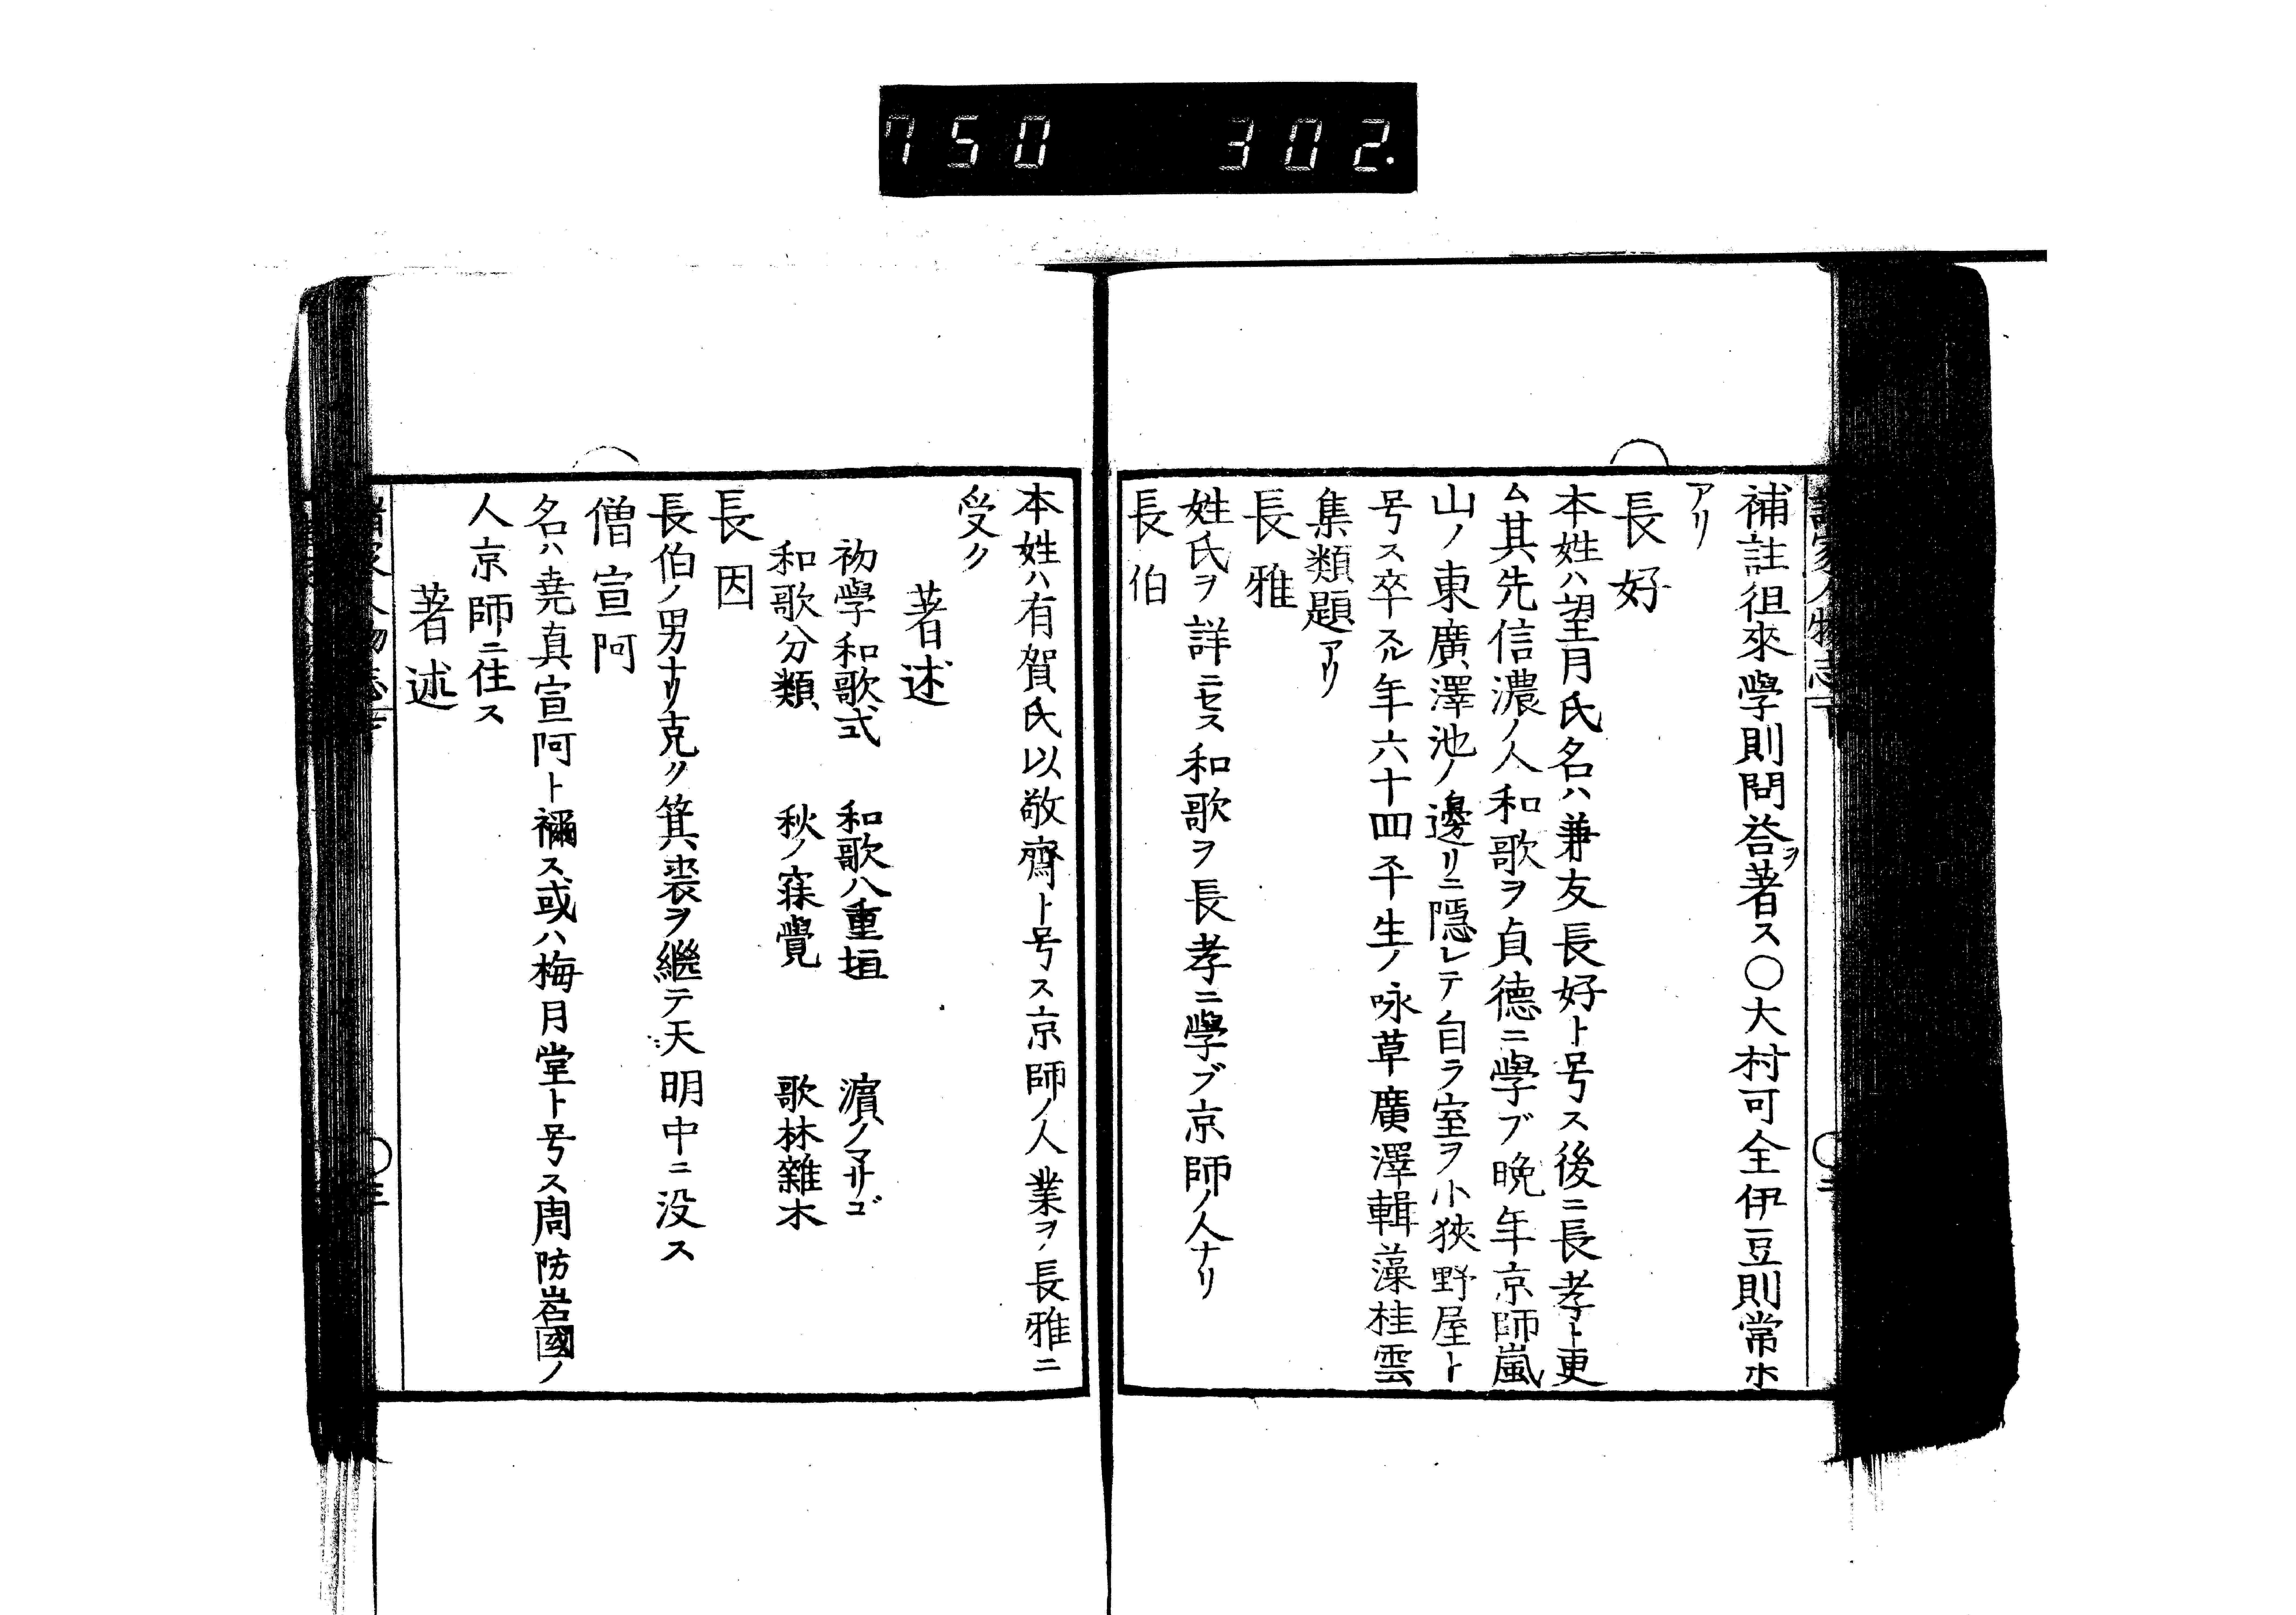 750 302.
補註徂來學則問荅ヲ著ス〇大村可全伊豆則常ホ
アリ
長好
本姓ハ望月氏名ハ兼友長好ト号ス後ニ長孝ト更
ム其先信濃ノ人和歌ヲ貞德ニ學ブ晩年京師嵐
山ノ東廣澤池ノ邊リニ隱レテ自ラ室ヲ小狹野屋ト
号ス卒スル年六十四平生ノ咏草廣澤輯藻桂雲
集類題アリ
長雅
姓氏ヲ詳ニセス和歌ヲ長孝ニ學ブ京師ノ人ナリ
長伯
本姓ハ有賀氏以敬齋ト号ス京師ノ人業ヲ長雅ニ
受ク
著述
初學和歌式 和歌八重垣 濵ノマサゴ
和歌分類 秋ノ寐覺 歌林雜木
長因
長伯ノ男ナリ克ク箕裘ヲ繼テ天明中ニ没ス
僧宣阿
名ハ堯真宣阿ト禰ス或ハ梅月堂ト号ス周防岩國ノ
人京師ニ住ス
著述